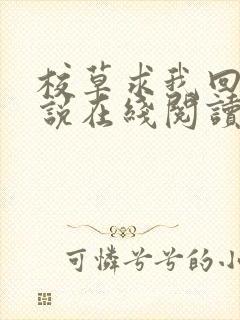 校草求我回
說在綫閱讀
可憐兮兮的小